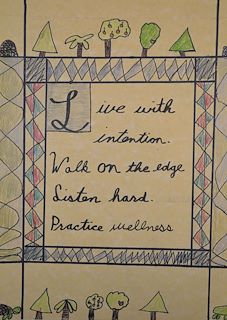 Live with
intention.
Walk on the edge
Listen hard.
Practice wellness